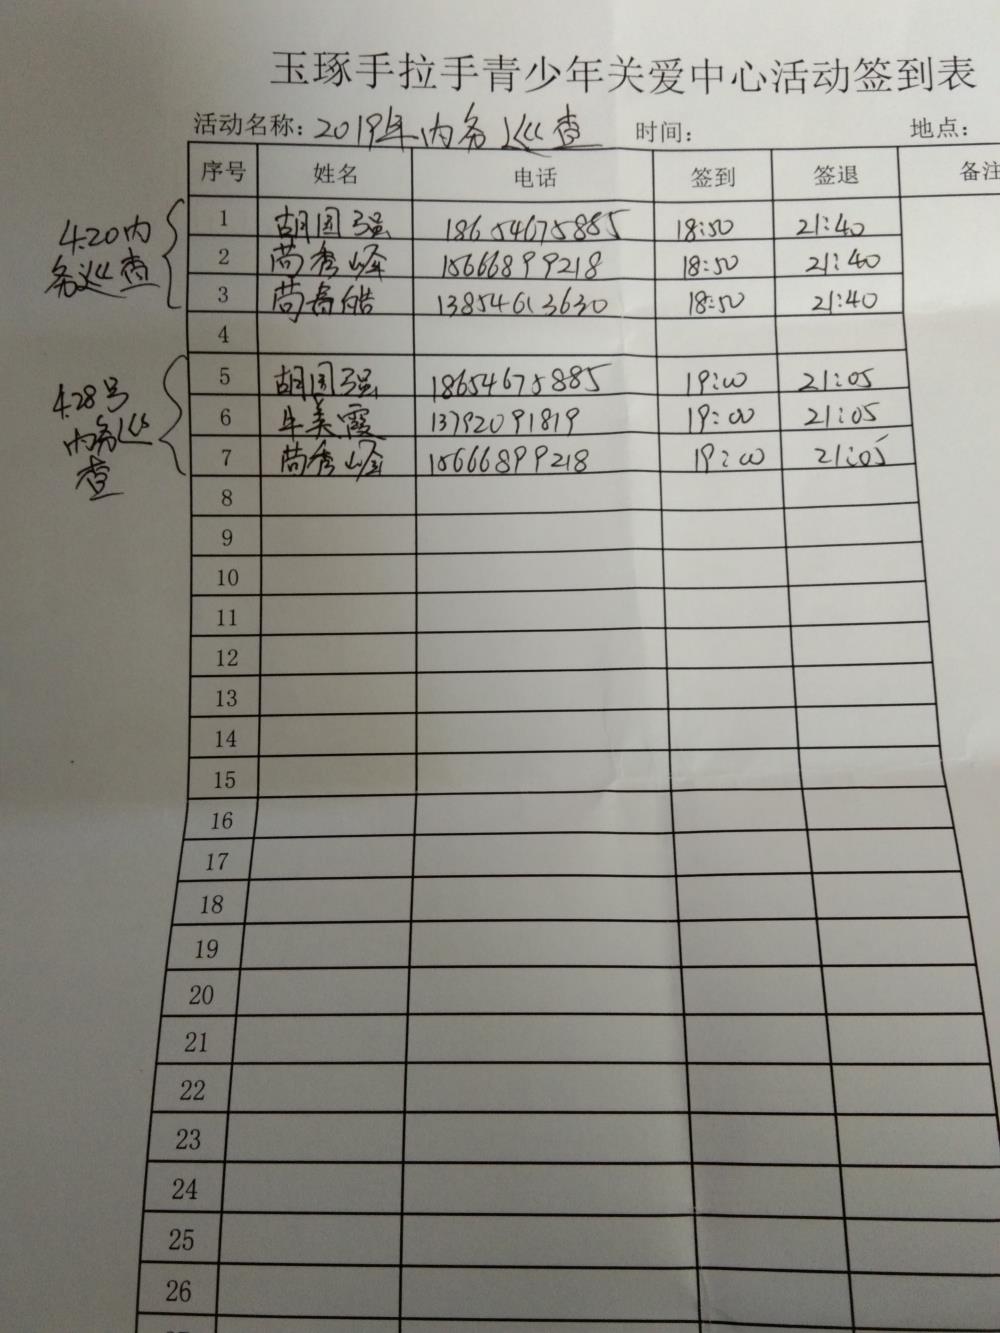 玉琢手拉手青少年关爱中心活动签到表
活动名称：2019年内务巡查 时间： 地点：
序号 姓名 电话 签到 签退 备注
4.20内
务巡查
1 胡国强 18654675885 18:50 21:40
2 尚秀峰 15666899218 18:50 21:40
3 尚 皓 13854613630 18:50 21:40
4
4.28号
内务巡
查
5 胡国强 18654675885 19:00 21:05
6 牛美霞 13792091819 19:00 21:05
7 尚秀峰 15666899218 19:00 21:05
8
9
10
11
12
13
14
15
16
17
18
19
20
21
22
23
24
25
26